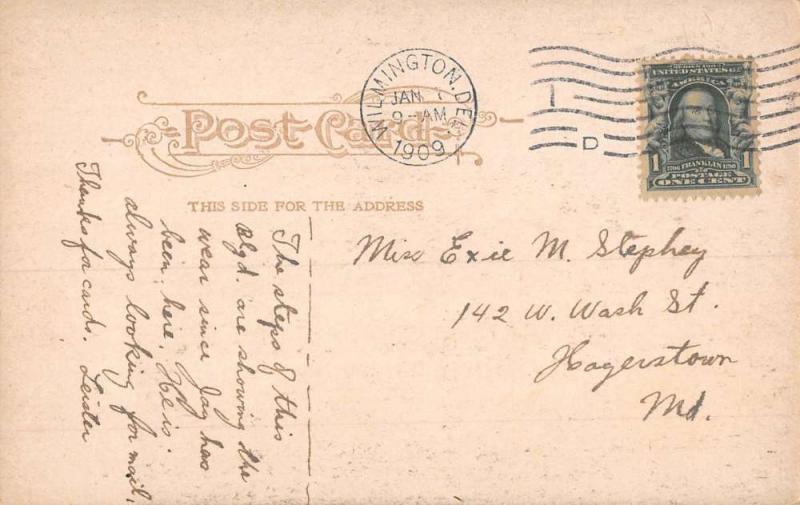 Post Card
THIS SIDE FOR THE ADDRESS
WILMINGTON, DEL.
JAN
9-AM
1909
D
UNITED STATES OF
AMERICA
1
1
FRANKLIN
POSTAGE
ONE CENT
Miss Exie M. Stephey
142 W. Wash St.
Hagerstown
Md.
The steps of this
Blgd. are showing the
wear since Jay has
been here. He is
always looking for mail.
Thanks for cards. Leister